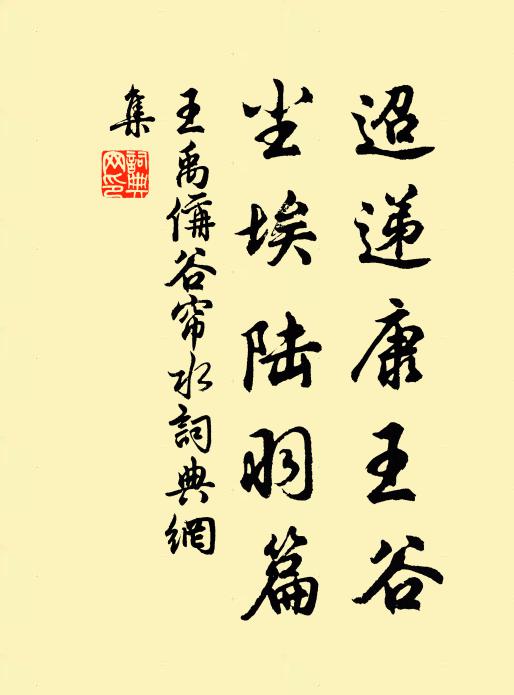 迢递康王谷
尘埃陆羽篇
王禹偁谷帘水詞典網
集
詞典网印